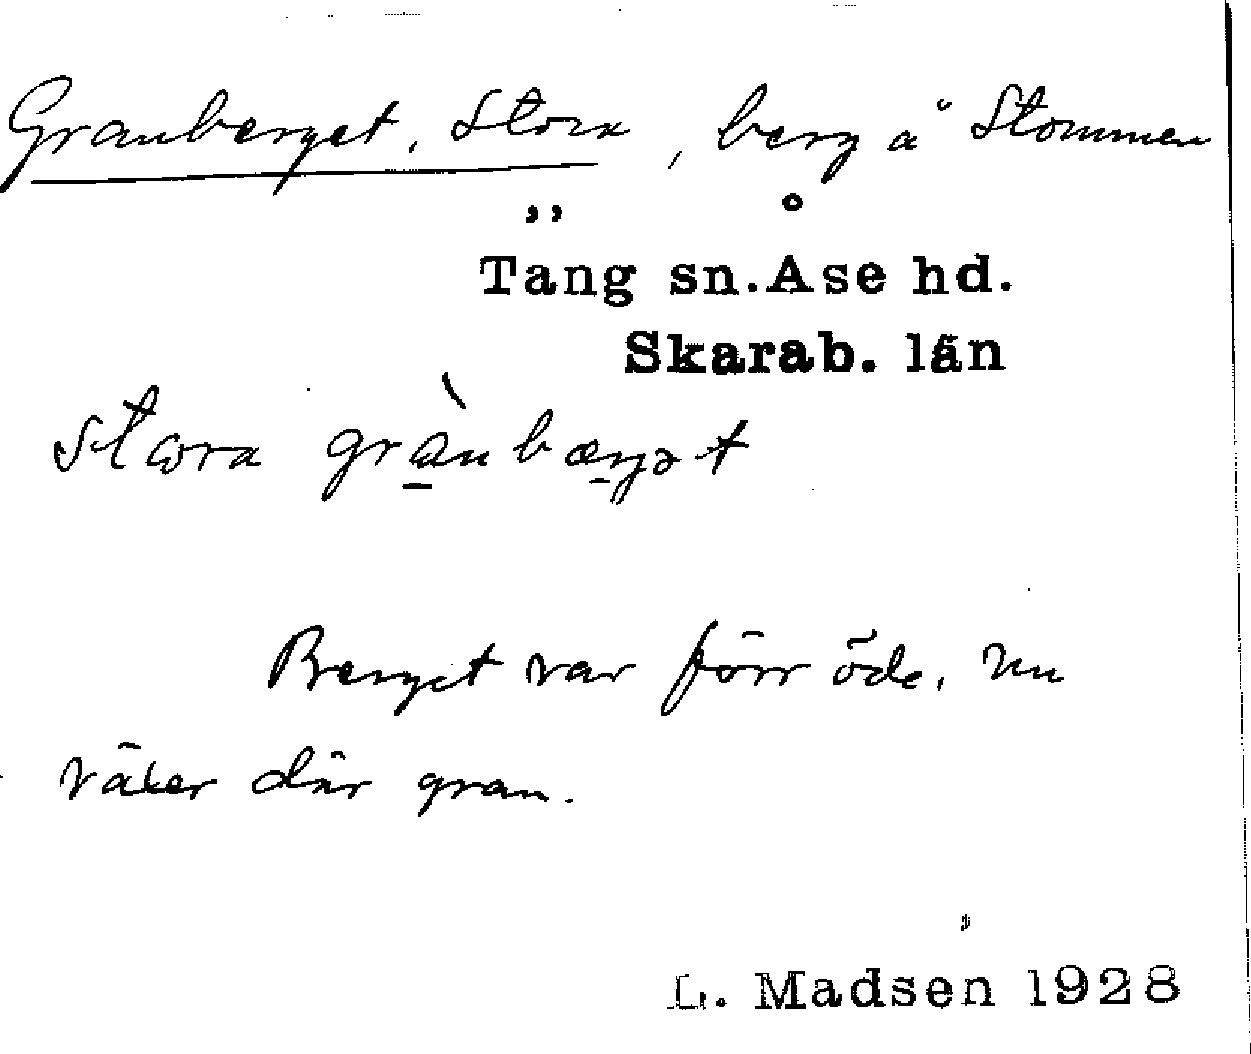 Granberget, Stora, berg å Stommen
Täng sn. Åse hd.
Skarab. län
stora grànbærjət
Berget var förr öde, nu
växer där gran.
L. Madsen 1928